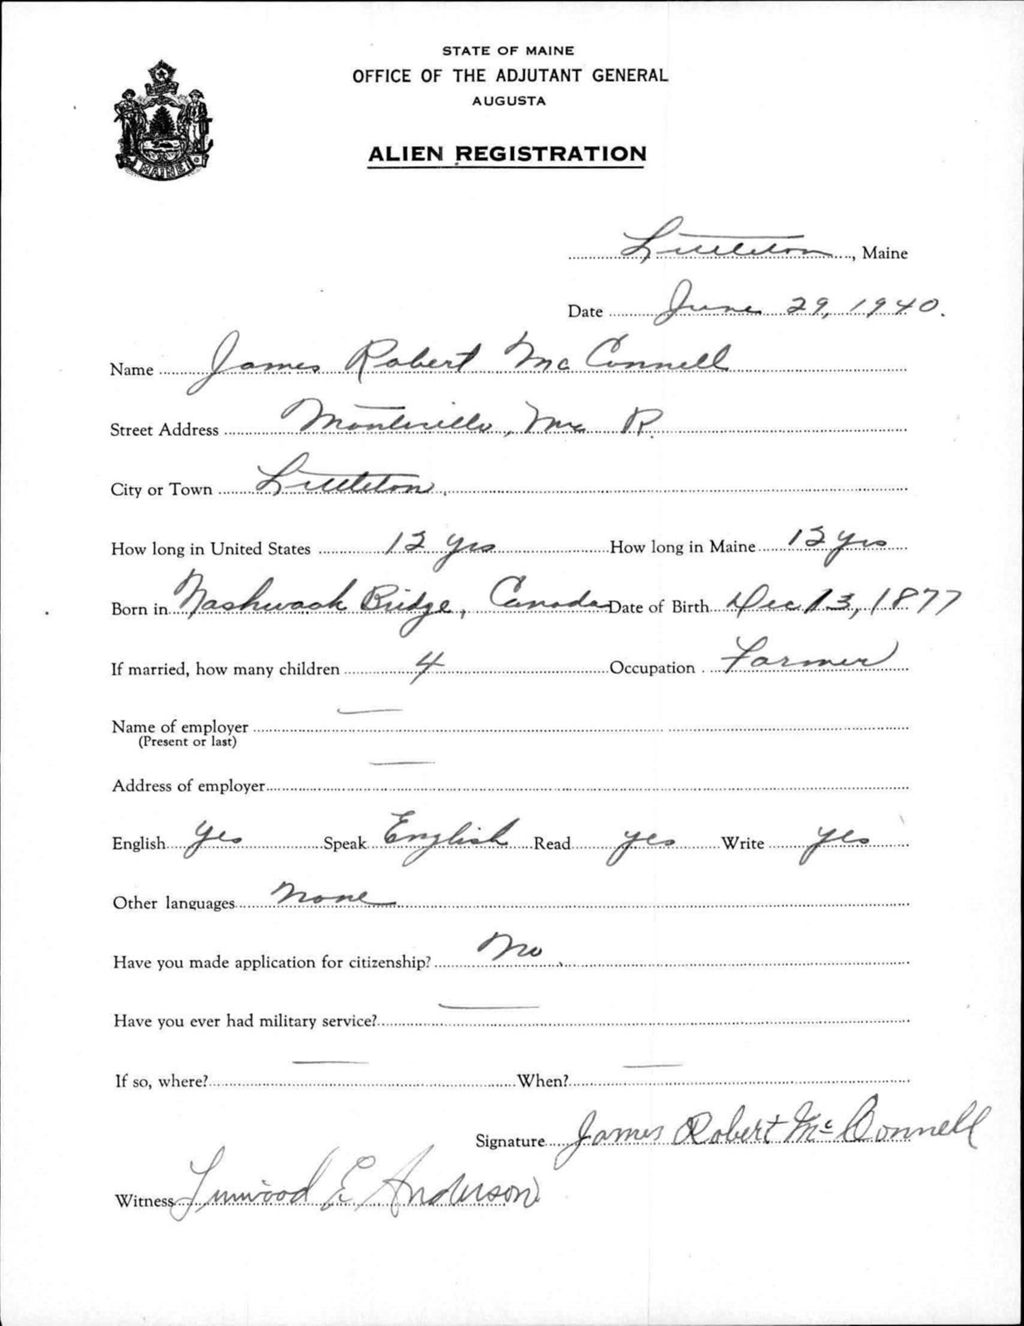 STATE OF MAINE
OFFICE OF THE ADJUTANT GENERAL
AUGUSTA
ALIEN REGISTRATION
MAINE
Littleton, Maine
Date June 29, 1940.
Name James Robert McConnell
Street Address Monticello, Me R.
City or Town Littleton,
How long in United States 12 yrs How long in Maine 12 yrs
Born in Nashwaak Bridge, Canada Date of Birth Dec 13, 1877
If married, how many children 4 Occupation Farmer
Name of employer —
(Present or last)
Address of employer —
English Yes Speak English Read yes Write yes
Other languages None
Have you made application for citizenship? No
Have you ever had military service? —
If so, where? — When? —
Signature James Robert McConnell
Witness Linwood E Anderson